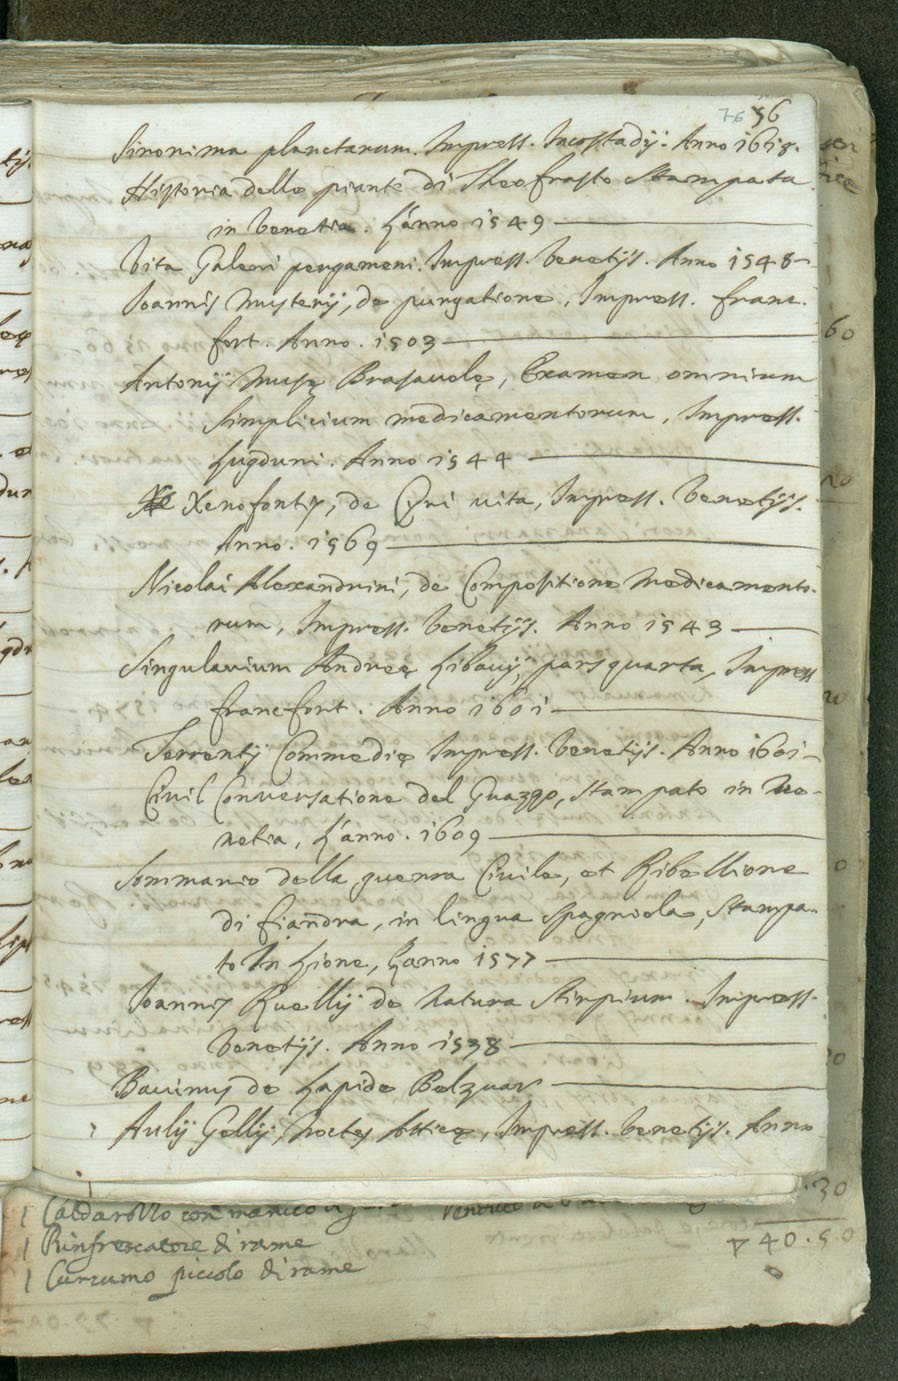 76 56
Sinonima planetarum. Impress. Incostadij. Anno 1618.
Historia delle piante di Theofrasto Stampata
in Venetia. L'anno 1549
Vita Galeni pergameni. Impress. Venetijs. Anno 1548
Ioannis Musterij, de purgatione, Impress. franc.
fort. Anno. 1503
Antonij Musę Brasauolę, Examen omnium
Simplicium medicamentorum, Impress.
Lugduni. Anno 1544
Xenofontis, de Cyri vita, Impress. Venetijs.
Anno. 1569
Nicolai Alexandrini, de Compositione Medicamento-
rum, Impress. Venetijs. Anno 1543
Singularium Andreę Libauij, pars quarta, Impress
francfort. Anno 1601
Terrentij Commedię Impress. Venetijs. Anno 1601
Civil Conversatione del Guazzo, stampato in Ve-
netia, L'anno. 1609
Sommario della guerra Civile, et Ribellione
di fiandra, in lingua spagniola, stampa-
to In Lione, L'anno 1577
Ioannis Ruellij de Natura Stirpium. Impress.
Venetijs. Anno 1538
Bauinus de Lapide Belzuar
Aulij Gellij, Noctes Atticę, Impress. Venetijs. Anno
60
20
30
1 Caldarollo con manico di
1 Rinfrescatore di rame
40.50
1 Curcumo piccolo di rame